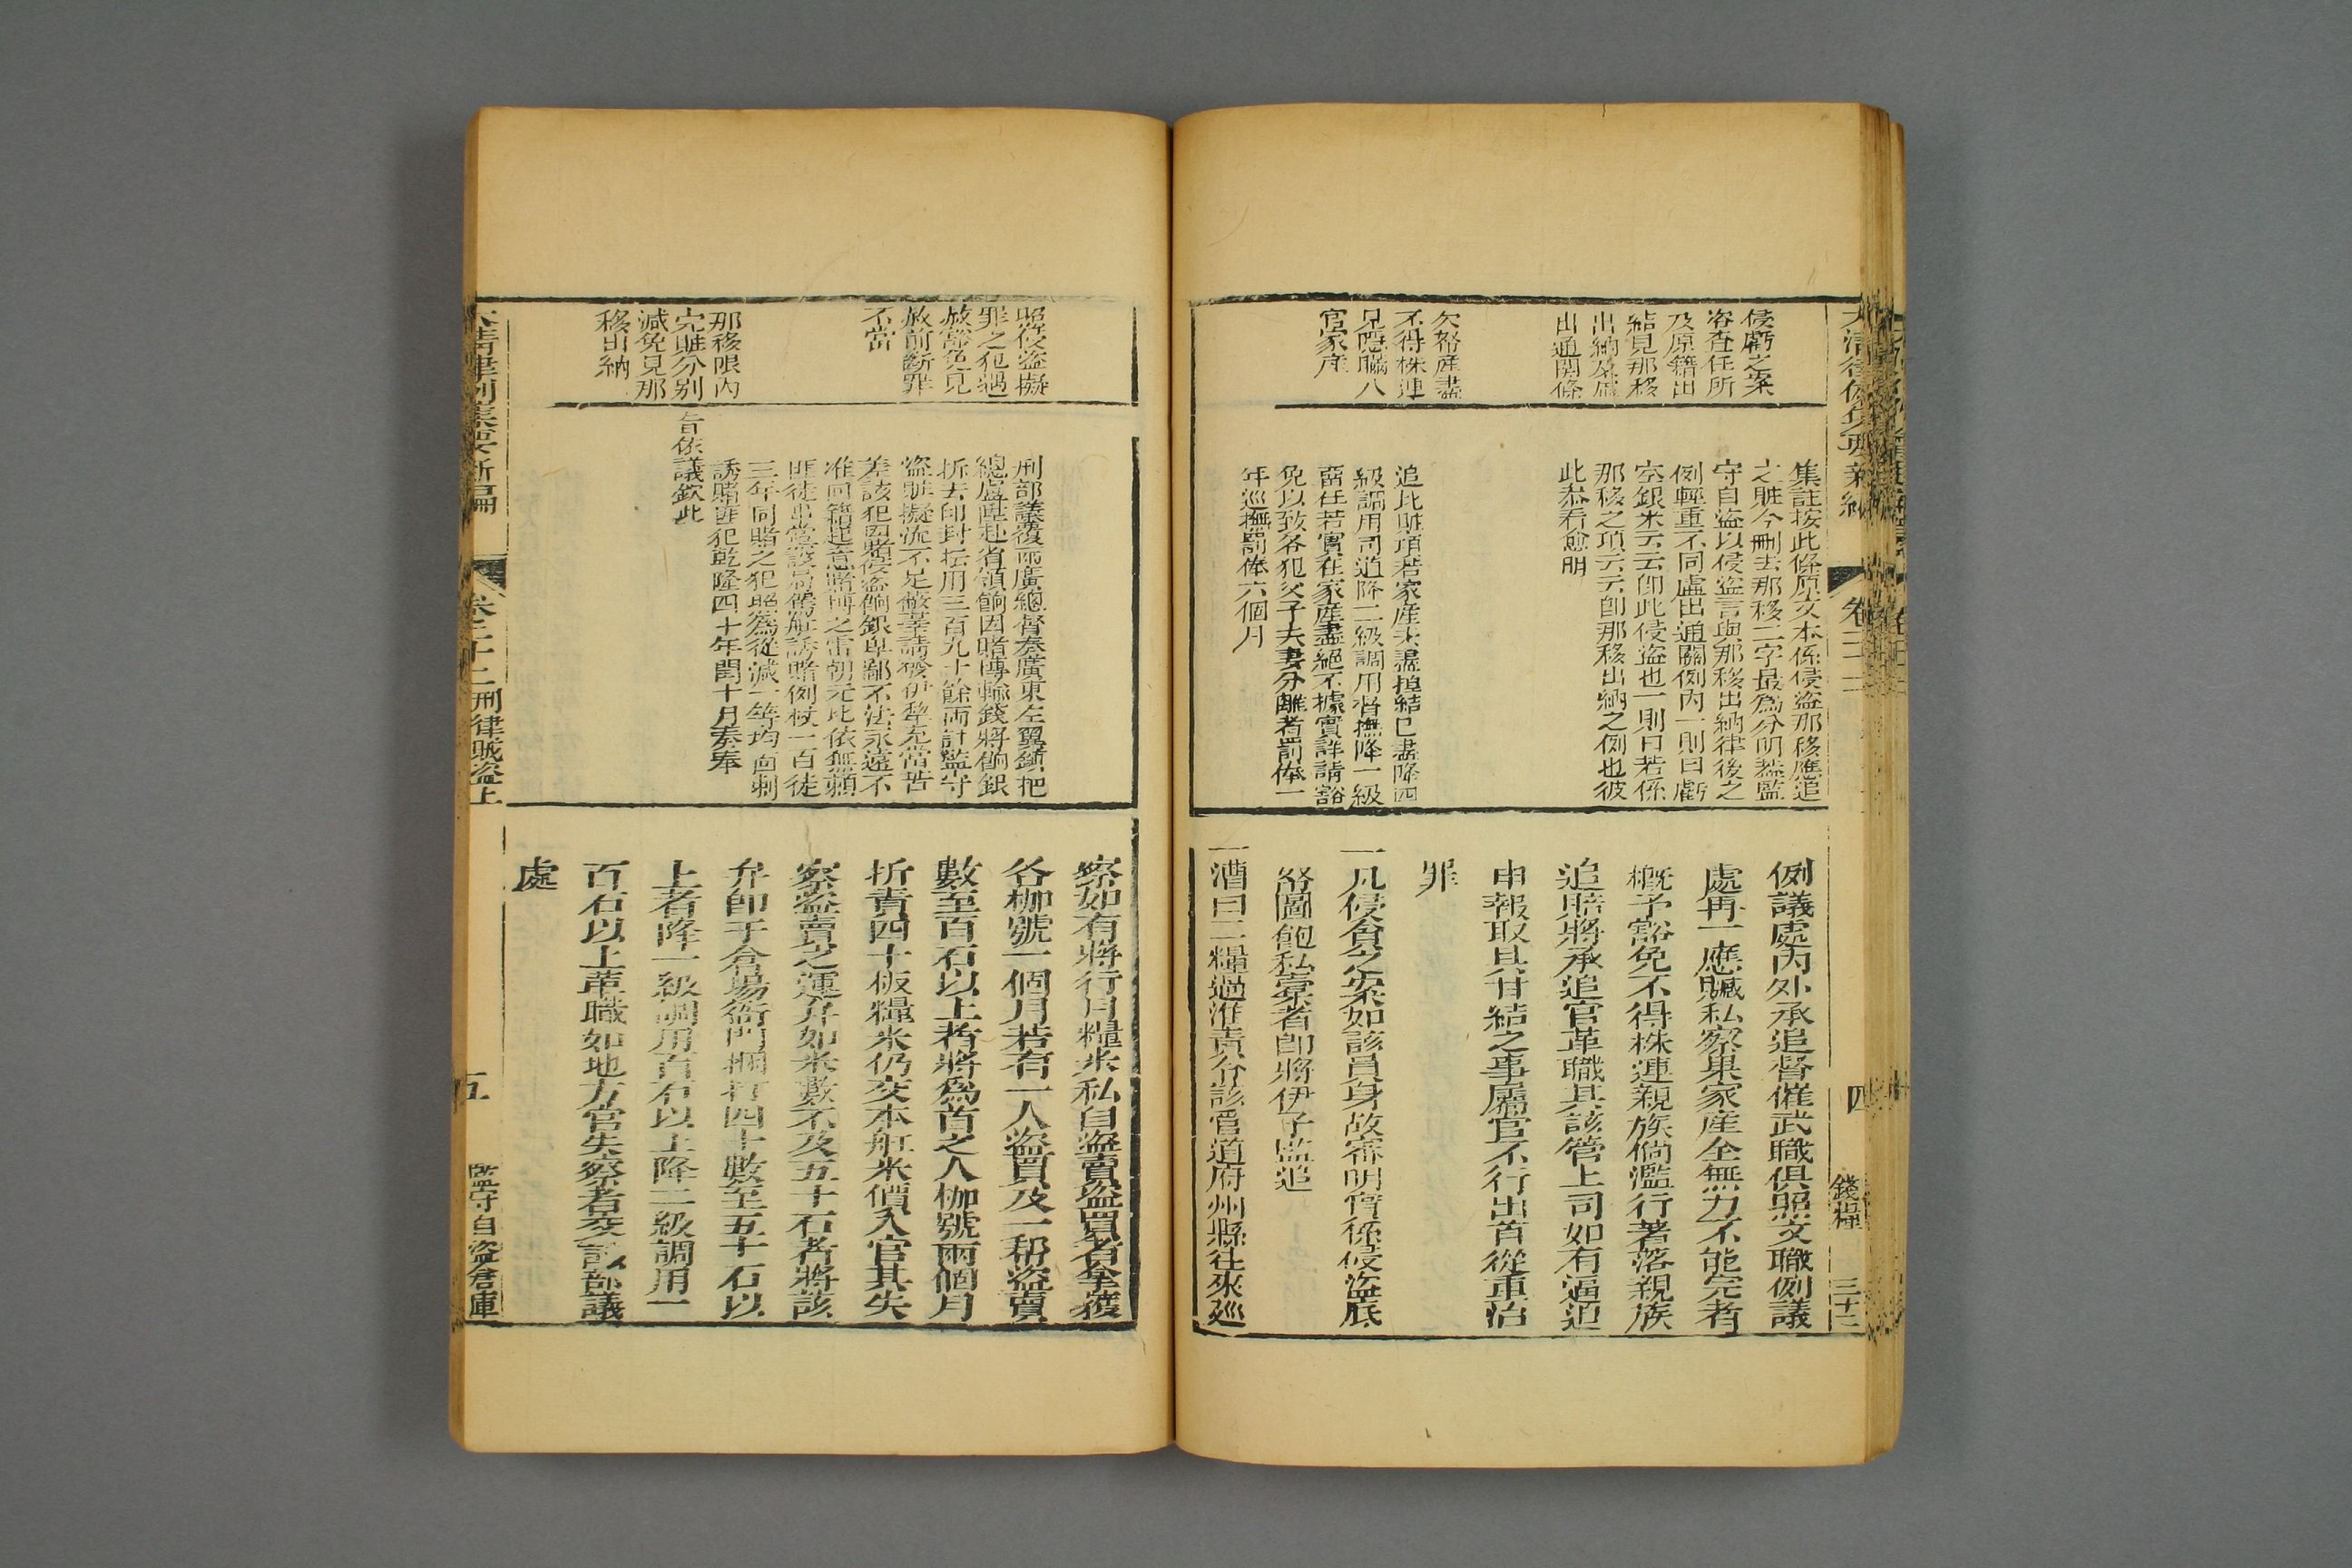 侵虧之案
咨查任所
及原籍出
結見那移
出納及虛
出通關條
欠帑產盡
不得株連
見隱瞞入
官家產
集註按此條原文本係侵盜那移應追
之賍今刪去那移二字最為分明蓋監
守自盜以侵盜言與那移出納律後之
例輕重不同虛出通關例內一則曰虧
空銀米云云即此侵盜也一則曰若係
那移之項云云即那移出納之例也彼
此叅看愈明
追比賍項若家產未盡揑結已盡降四
級調用司道降二級調用督撫降一級
畱任若實在家產盡絕不據實詳請豁
免以致各犯父子夫妻分離者罰俸一
年巡撫罰俸六個月
例議處內外承追督催武職俱照文職例議
處再一應贓私察果家產全無力不能完者
槪予豁免不得株連親族倘濫行著落親族
追賠將承追官革職其該管上司如有逼迫
申報取具甘結之事屬官不行出首從重治
罪
一凡侵貪之案如該員身故審明實係侵盜庫
帑圖飽私槖者即將伊子監追
一漕白二糧過淮責令該管道府州縣往來廵
大清律例集要新編
卷二十二
四
錢糧
三十二
照侵盜擬
罪之犯遇
赦豁免見
赦前斷罪
不當
那移限內
完賍分别
減免見那
移出納
刑部議覆兩廣總督奏廣東左翼鎮把
總盧陞赴省領餉因賭博輸錢將餉銀
拆去印封抎用三百九十餘兩計監守
盜賍擬流不足蔽辜請發伊犂充當苦
差該犯因賭侵盜餉銀卑鄙不法永遠不
准回籍起意賭博之雷朝元比依無頼
匪徒出當設局僱舡誘賭例杖一百徒
三年同賭之犯照為從減一等均面刺
誘賭匪犯乾隆四十年閏十月奏奉
旨依議欽此
察如有將行月糧米私自盜賣盜買者拿獲
各枷號一個月若有一人盜買及一帮盜賣
數至百石以上者將為首之人枷號兩個月
折責四十板糧米仍交本舡米價入官其失
察盜賣之運弁如米數不及五十石者將該
弁即于倉場衙門捆打四十數至五十石以
上者降一級調用百石以上降二級調用一
百石以上革職如地方官失察者交該部議
處
大清律例集要新編
卷二十二
刑律賊盜上
五
監守自盜倉庫